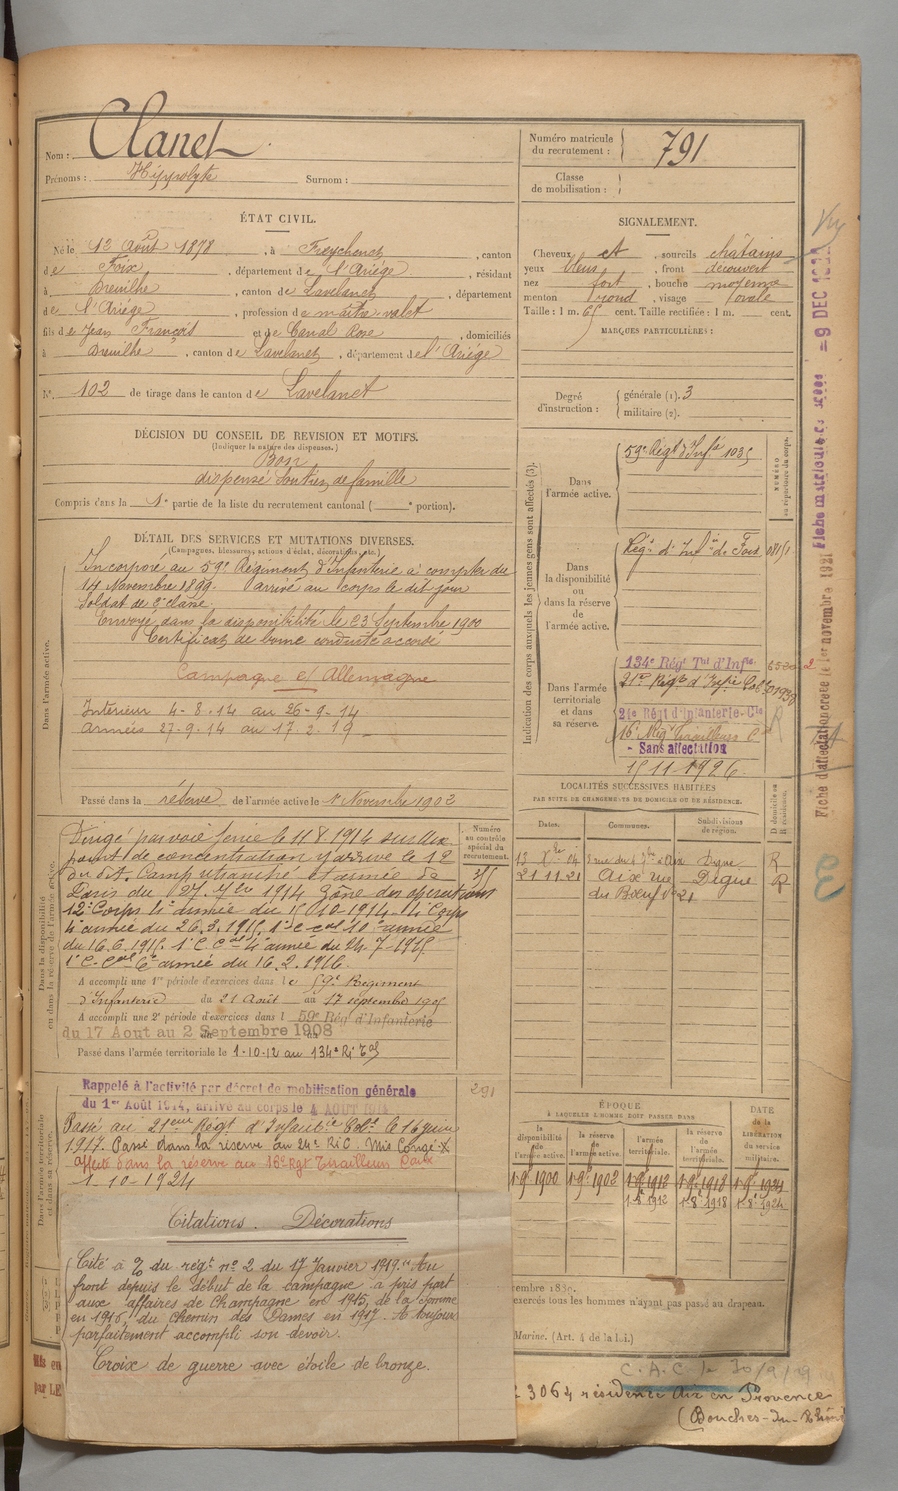 Nom : Clanet
Prénoms : Hippolyte Surnom :
Numéro matricule du recrutement : 791
Classe de mobilisation :
ÉTAT CIVIL.
Né le 12 Août 1878, à Freychenet, canton
de Foix, département de l'Ariège, résidant
à Dreuilhe, canton de Lavelanet, département
de l'Ariège, profession de maître valet
fils de Jean François et de Canal Rose, domiciliés
à Dreuilhe, canton de Lavelanet, département de l'Ariège
N° 102 de tirage dans le canton de Lavelanet
SIGNALEMENT.
Cheveux et, sourcils châtains
yeux bleus, front découvert
nez fort, bouche moyenne
menton rond, visage ovale
Taille : 1 m. 65 cent. Taille rectifiée : 1 m. cent.
MARQUES PARTICULIÈRES :
Degré d'instruction : générale (1). 3
militaire (2).
DÉCISION DU CONSEIL DE REVISION ET MOTIFS.
(Indiquer la nature des dispenses.)
Bon
dispensé Soutien de famille
Compris dans la 1e partie de la liste du recrutement cantonal ( e portion).
DÉTAIL DES SERVICES ET MUTATIONS DIVERSES.
(Campagnes, blessures, actions d'éclat, décorations, etc.)
Dans l'armée active.
Incorporé au 59e Régiment d'Infanterie à compter du
14 Novembre 1899. Arrivé au corps le dit jour
Soldat de 2e classe.
Envoyé dans la disponibilité le 23 Septembre 1900
Certificat de bonne conduite accordé
Campagne et Allemagne
Intérieur 4-8-14 au 26-9-14
Armées 27-9-14 au 17-2-19
Passé dans la réserve de l'armée active le 1er Novembre 1902
Indication des corps auxquels les jeunes gens sont affectés (3).
NUMÉRO au répertoire du corps.
Dans l'armée active.
59e Régt d'Infie 1035
Dans la disponibilité ou dans la réserve de l'armée active.
Régt d'Infie de Foix
Dans l'armée territoriale et dans sa réserve.
134e Régt Tal d'Infie
21e Régt d'Infie Cole 01938
24e Régt d'Infanterie Cle
16e Régt Tirailleurs Cx
- Sans affectation
15 11 1926.
Fiche d'affectation créée le 1er novembre 1921
LOCALITÉS SUCCESSIVES HABITÉES
PAR SUITE DE CHANGEMENTS DE DOMICILE OU DE RÉSIDENCE.
Dates. Communes. Subdivisions de région. D domicile ou R résidence.
Aix Digne R
21 11 21 Aix rue du Bœuf n° 21 Digne R
Numéro au contrôle spécial du recrutement.
Dans la disponibilité ou dans la réserve de l'armée active.
Dirigé par voie ferrée le 11 8 1914 sur un
point de concentration y arrive le 12
du dit. Camp retranché et armée de
Paris du 27. 7bre 1914 Zône des opérations
12e Corps 4e armée du 15 10-1914. 4e Corps
4e armée du 26.3.1915. 1er C. cal 10e armée
du 16.6.1915. 1er C. Cal 4e armée du 24-7-1915.
1er C. Cal 6e armée du 16.2.1916.
A accompli une 1re période d'exercices dans le 59e Régiment
d'Infanterie du 21 Août au 17 septembre 1905
A accompli une 2e période d'exercices dans l 59e Rég d'Infanterie
du 17 Aout au 2 Septembre 1908
Passé dans l'armée territoriale le 1-10-12 au 134e Ri Tal
291
Dans l'armée territoriale et dans sa réserve.
Rappelé à l'activité par décret de mobilisation générale
du 1er Août 1914, arrivé au corps le 4 AOUT 1914
Passé au 21eme Régt d'Infantie Cole le 16 juin
1917. Passé dans la réserve au 24e RIC. Mis Congé
affecté dans la réserve au 16e Rgt Tirailleurs Caux
1-10-1924
ÉPOQUE
À LAQUELLE L'HOMME DOIT PASSER DANS
la disponibilité de l'armée active. la réserve de l'armée active. l'armée territoriale. la réserve de l'armée territoriale. DATE de la LIBÉRATION du service militaire.
1-9e 1900 1-9e 1902 1-9e 1912 1-9e 1918 1-9e 1924
1-8e 1912 1-8e 1918 1-8e 1924
Citations. Décorations
Cité à l'o/ du régt n° 2 du 17 Janvier 1919. "Au
front depuis le début de la campagne a pris part
aux affaires de Champagne en 1915, de la Somme
en 1916, du Chemin des Dames en 1917. A toujours
parfaitement accompli son devoir.
Croix de guerre avec étoile de bronze.
exercés tous les hommes n'ayant pas passé au drapeau.
Marine. (Art. 4 de la loi.)
C.A.C. le 30/9/29
3064 résidence Aix en Provence
(Bouches-du-Rhône)